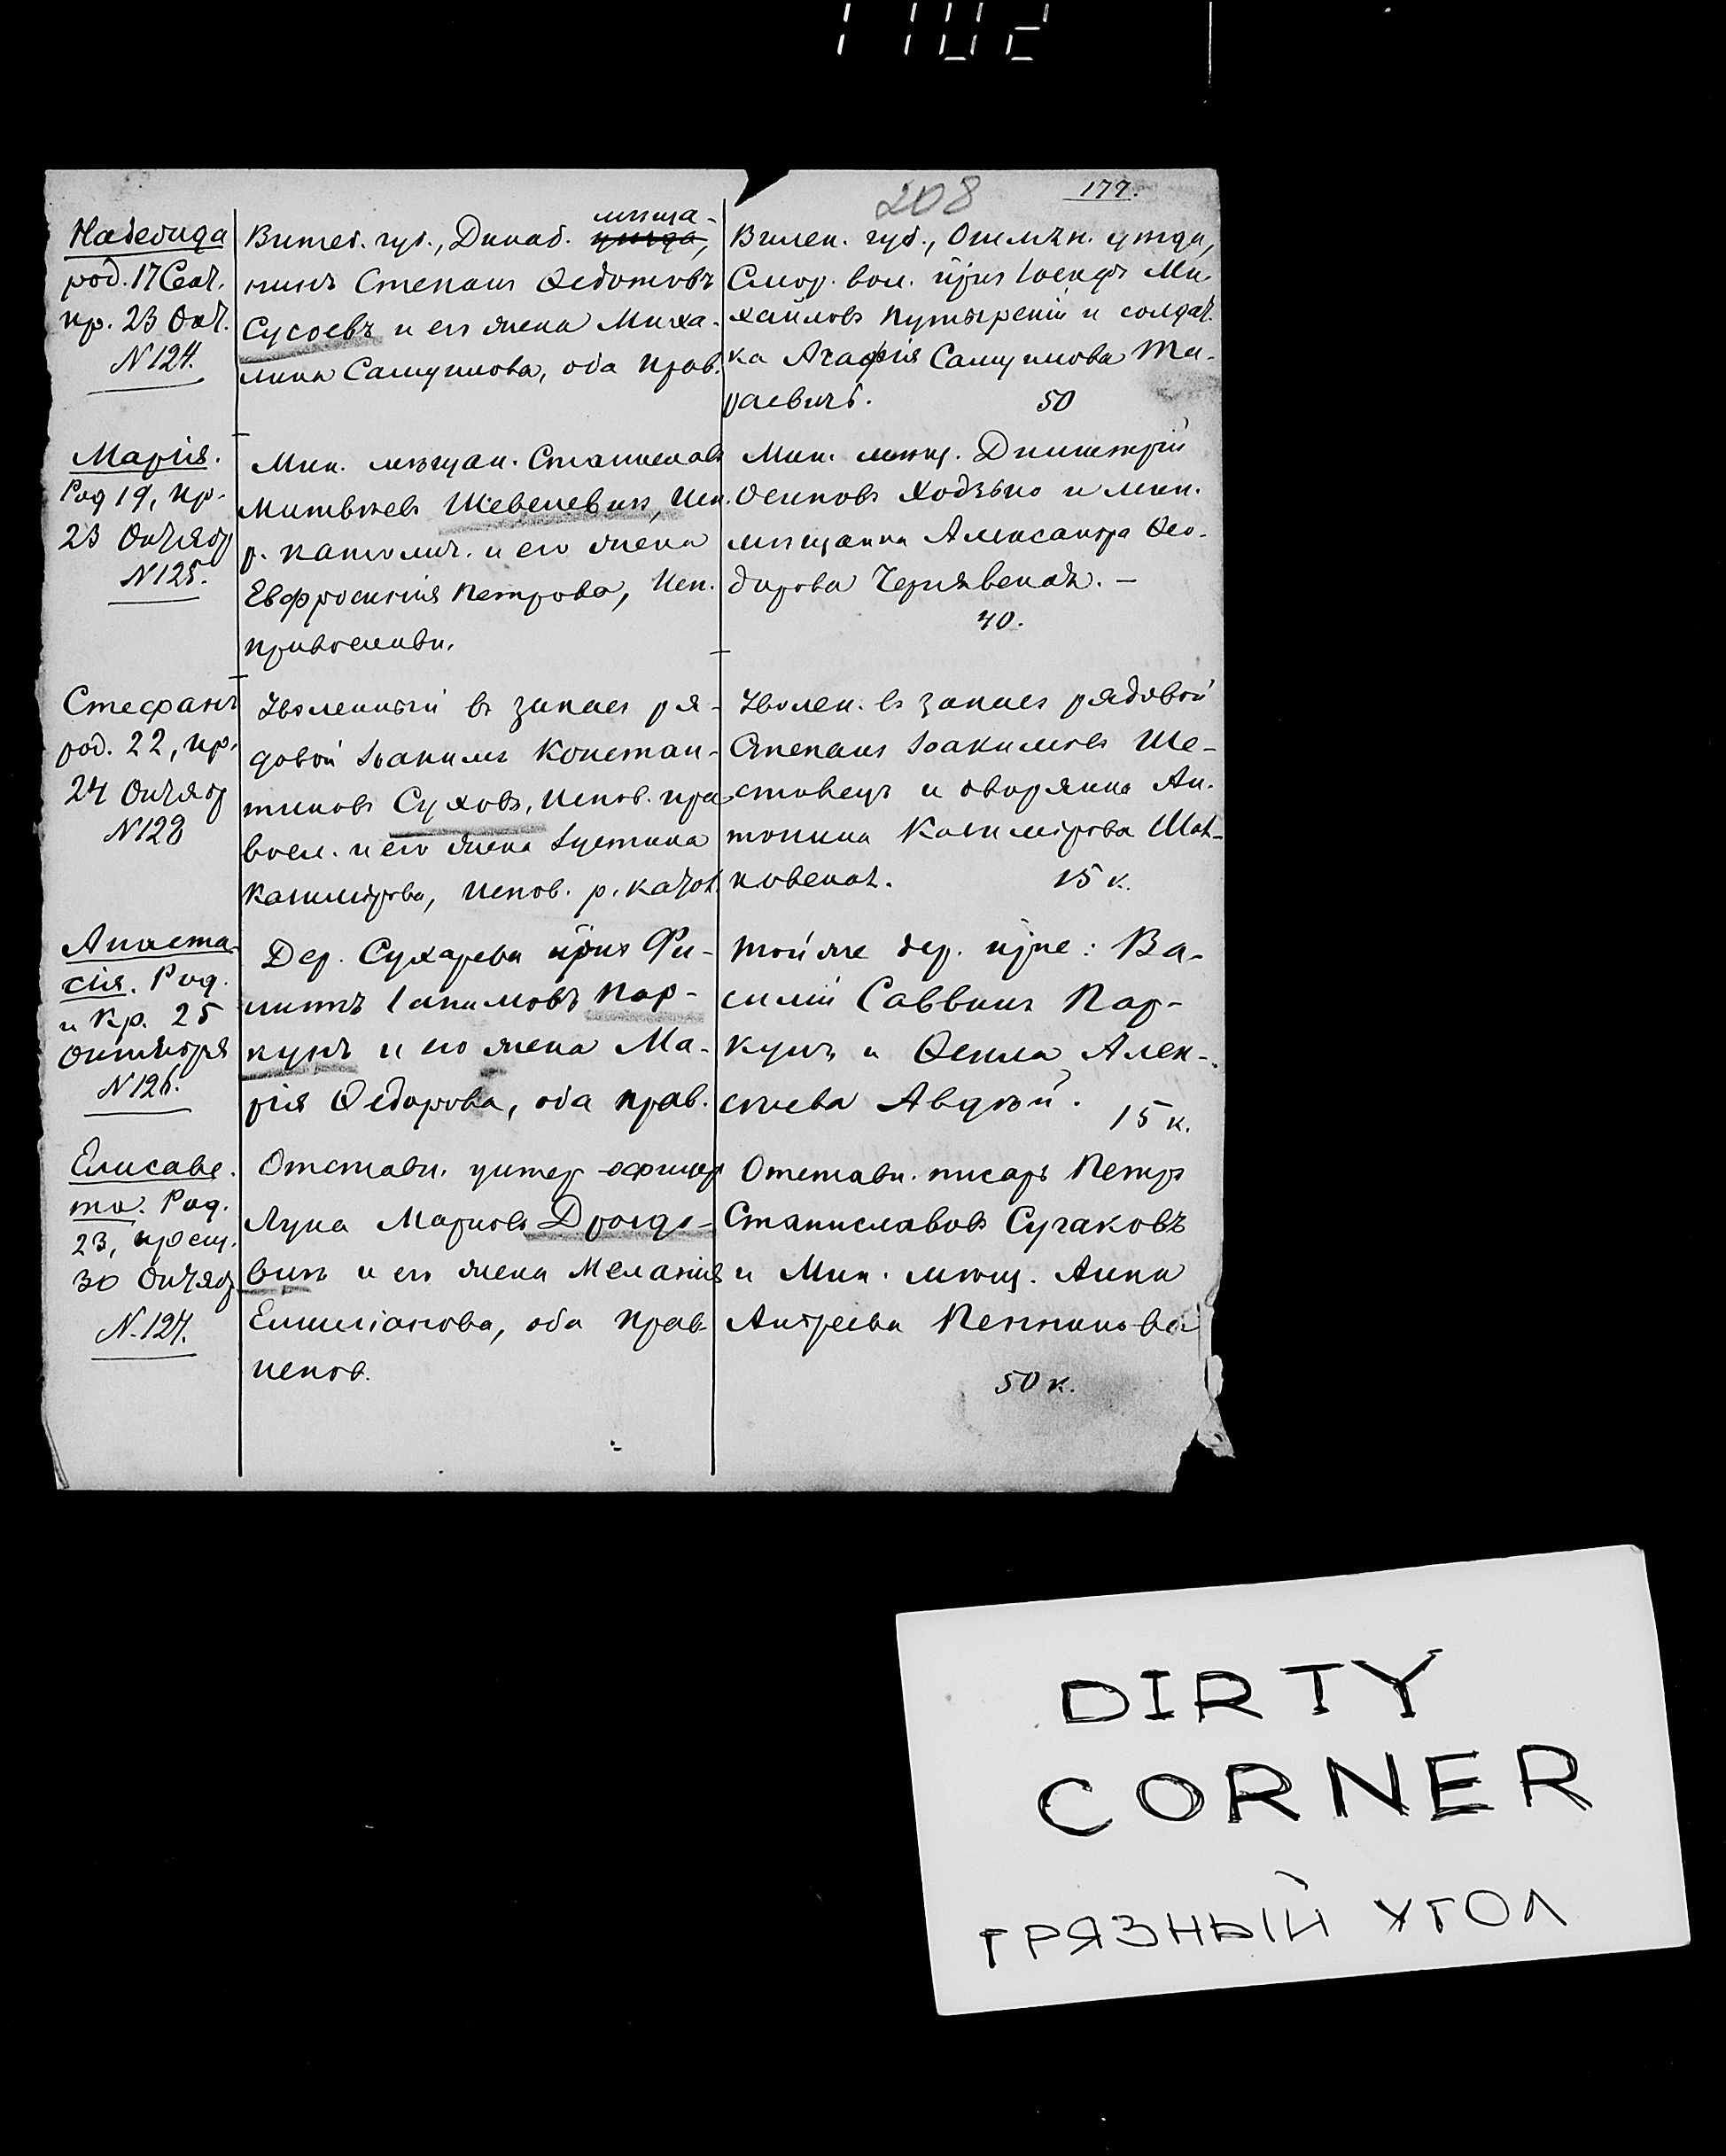 208
177.
Надежда
род. 17 Сент.
кр. 23 Окт.
N 124.
Витеб. губ., Динаб. уѣзда, мѣща-
нинъ Степанъ Ѳедотовъ
Сусоевъ и его жена Миха-
лина Самуилова, оба прав.
Вилен. губ., Ошмян. уѣзда,
Смор. вол. кр-нъ Іосифъ Ми-
хайловъ Путырскій и солдат-
ка Агафія Самуилова Та-
раевичъ.
50
Марія.
Род 19, кр.
23 Октяб
N 125.
Мин. мѣщан. Станиславъ
Матвѣевъ Шевелевичъ, исп.
р. католич. и его жена
Евфросинія Петрова, исп.
православн.
Мин. мѣщ. Димитрій
Осиповъ Ходзько и мин.
мѣщанка Александра Ѳео-
дорова Чернявская. —
40.
Стефанъ
род. 22, кр.
24 Октяб
N 128
Уволенный въ запасъ ря-
довой Іоакимъ Констан-
тиновъ Суховъ, испов. пра-
восл. и его жена Іустина
Казимірова, испов. р. катол.
Уволен. въ запасъ рядовой
Степанъ Іоакимовъ Ше-
стовецъ и дворянка Ан-
тонина Казимірова
15 к.
Анаста-
сія. Род.
и кр. 25
Октября
N 126.
Дер. Сухарева кр-нъ Фи-
липпъ Іакимовъ Пар-
кунъ и его жена Ма-
рія Ѳедорова, оба прав.
Той же дер. кр-не: Ва-
силій Саввинъ Пар-
кунъ и Ѳекла Алек-
сѣева Авдѣй.
15 к.
Елисаве-
та. Род.
23, крещ.
30 Октяб
N. 127.
Отставн. унтер-офицер
Лука Марковъ Дрозд-
вичъ и его жена Меланія
Емиліанова, оба прав.
испов.
Отставн. писарь Петръ
Станиславовъ Сугаковъ
и Мин. мѣщ. Анна
Андреева
50 к.
DIRTY
CORNER
ГРЯЗНЫЙ УГОЛ